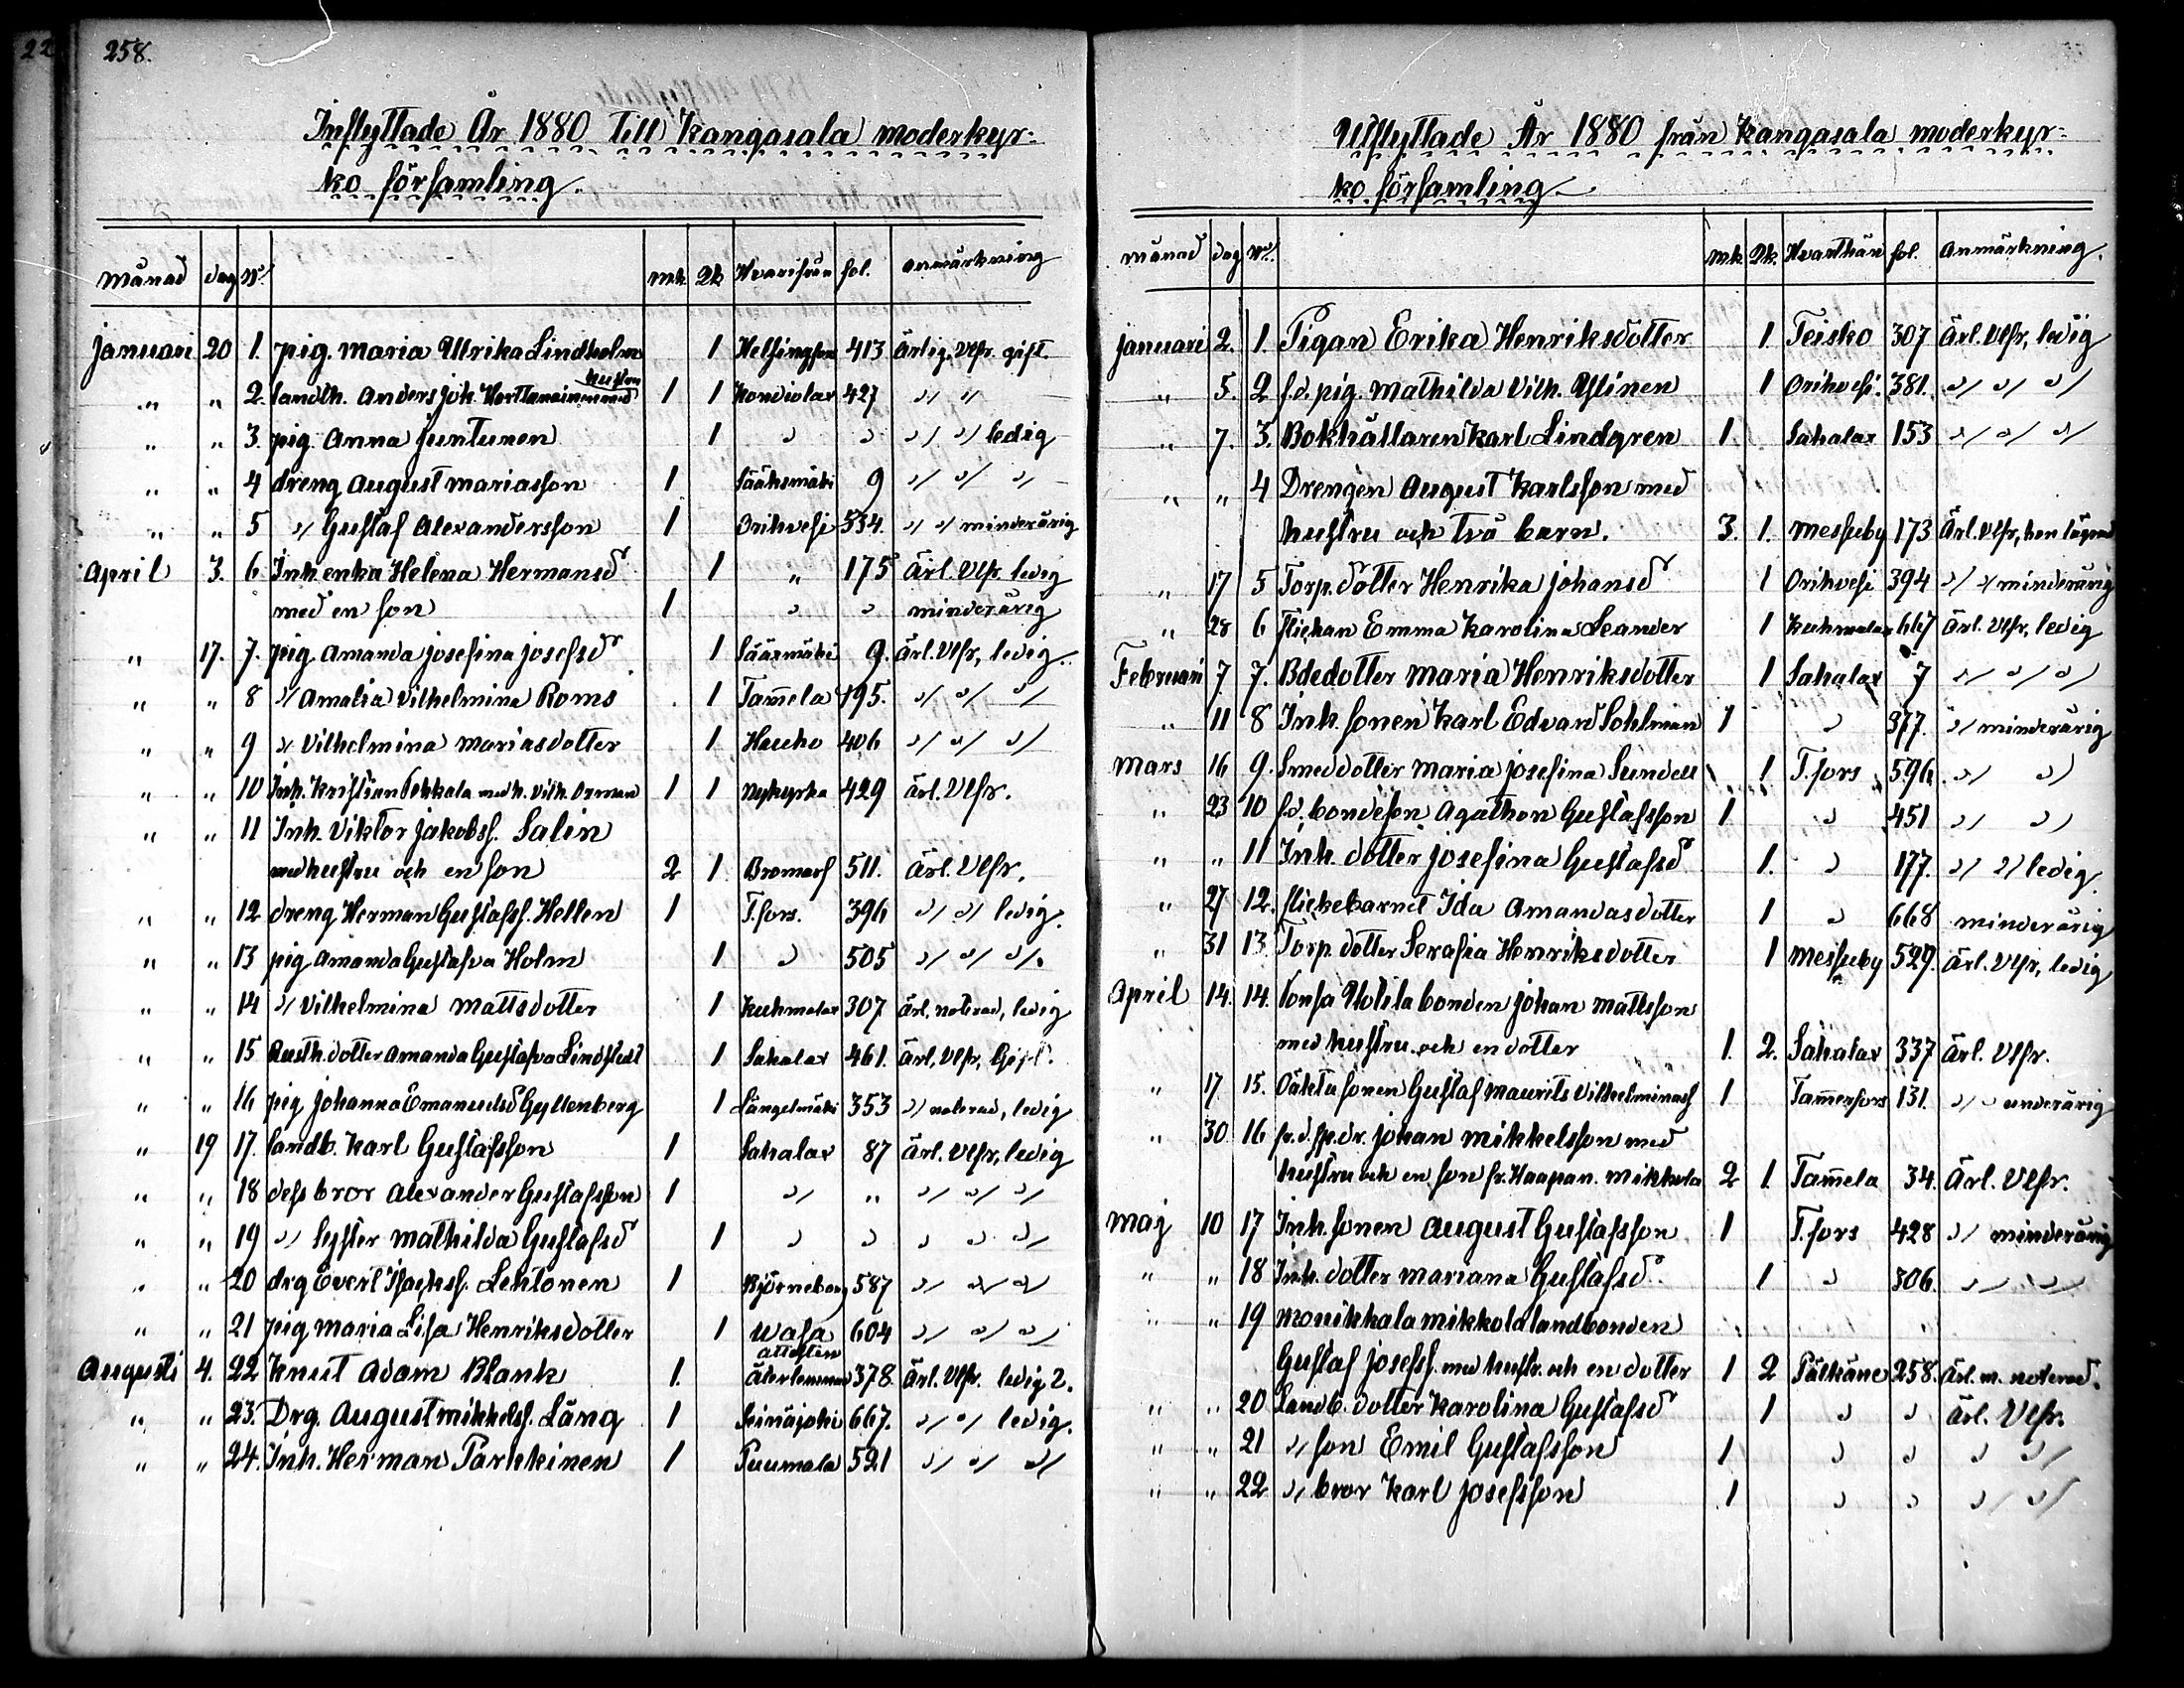 258.
Inflyttade År 1880 till Kangasala moderkyr-
ko församling.
Månad dag No. Mk. Qk Hvarifrån fol. Anmärkning
Januari 20 1. pig. Maria Ulrika Lindholm 1 Helsingfors 413 Ärlig, Vlfr. gift.
" " 2. landth. Anders Joh. med hustru 1 1 Kondiolax 427 " "
" " 3. pig. Anna Juntunen 1 " " " " ledig
" " 4 dreng August Mariasson 1 Sääksmäki 9 " " "
" " 5 " Gustaf Alexandersson 1 Orihvesi 534. " " minderårig
April 3. 6. Inh. enka Helena Hermansd 1 " 175 Ärl. Vlfr. ledig
med en son 1 " " minderårig
" 17. 7. pig. Amanda Josefina Josefsd 1 Sääxmäki 9. Ärl. Vlfr, ledig.
" " 8 " Amalia Vilhelmina Roms 1 Tam̄ela 195. " " "
" " 9 " Vilhelmina Mariasdotter 1 Hauho 406 " " "
" " 10 Inh. Kristian Pekkala med h. Vilh. Orman 1 1 Nykyrka 429 Ärl. Vlfr.
" " 11 Inh. Viktor Jakobss. Salin
med hustru och en son 2 1 Bromarf 511. Ärl. Vlfr.
" " 12 dreng Herman Gustafss. Hellen 1 T.fors. 396 " " ledig.
" " 13 pig Amanda Gustafva Holm 1 " 505 " " ".
" " 14 " Vilhelmina Mattsdotter 1 Kuhmalax 307 Ärl. noterad, ledig
" " 15 Rusth. dotter Amanda Gustafva Lindstedt 1 Sahalax 461. Ärl. Vlfr, Gift.
" " 16 pig Johanna Emanuelsd Gyllenberg 1 Längelmäki 353 " noterad, ledig
" 19 17. landb. Karl Gustafsson 1 Sahalax 87 Ärl. Vlfr, ledig
" " 18 dess bror Alexander Gustafsson 1 " " " " "
" " 19 " syster Mathilda Gustafsd 1 " " " " "
" " 20 drg Evert Isakss. Lehtonen 1 Björneborg 587 " " "
" " 21 pig Maria Lisa Henriksdotter 1 Wasa 604 " " "
Augusti 4. 22 Knut Adam Blank 1. attesten återlemnad 378. Ärl. Vlfr. ledig 2.
" " 23. Drg. August Mikkelss. Lång 1 Seinäjoki 667. " " ledig.
" " 24. Inh. Herman Parkkinen 1 Puumala 521 " " "
Utflyttade År 1880 från Kangasala moderkyr-
ko församling
Månad dag No. Mk. Qk. Hvarthän fol. Anmärkning.
Januari 2. 1. Pigan Erika Henriksdotter 1 Teisko 307 Ärl. Vlfr, ledig
" 5. 2 f.d. pig. Mathilda Vilh. Ylinen 1 Orihvesi. 381. " " "
" 7. 3. Bokhållaren Karl Lindgren 1. Sahalax 153 " " "
" " 4 Drengen August Karlsson med
hustru och två barn. 3. 1. Messuby 173 Ärl. Vlfr, hon
" 17 5 Torp. dotter Henrika Johansd 1 Orihvesi 394 " " minderårig
" 28 6 flickan Emma Karolina Leander 1 Kuhmalax 667 Ärl. Vlfr, ledig
Februari 7 7. Bdedotter Maria Henriksdotter 1 Sahalax 7 " " "
" 11 8 Inh. sonen Karl Edvard Sohlman 1 " 377. " minderårig
Mars 16 9. Smeddotter Maria Josefina Sundell 1 T.fors 596. " "
" 23 10 f.d. bondeson Agathon Gustafsson 1 " 451 " "
" " 11 Inh. dotter Josefina Gustafsd 1. " 177. " " ledig
" 27 12. flickebarnet Ida Amandasdotter 1 " 668 minderårig
" 31 13. Torp. dotter Serafia Henriksdotter 1 Messuby 529. Ärl. Vlfr, ledig
April 14. 14. bonden Johan Mattsson
med hustru och en dotter 1. 2. Sahalax 337 Ärl. Vlfr.
" 17 15. sonen Gustaf Maurits Vilhelminass 1 Tam̄erfors 131. " "
" 30 16 Johan Mikkelsson med
hustru och en son fr. Haapan. Mikkola 2 1. Tam̄ela 34. Ärl. Vlfr.
Maj 10 17 Inh. sonen August Gustafsson 1 T.fors 428 " minderårig
" " 18 Inh. dotter Mariana Gustafsd 1 " 306. " "
" " 19 Mikkola landbonden
Gustaf Josefss. med hustr. och en dotter 1 2 Pälkäne 258. Ärl. m. noterad.
" " 20 Landb. dotter Karolina Gustafsd 1 " " Ärl. Vlfr.
" " 21 " son Emil Gustafsson 1 " " " "
" " 22 " bror Karl Josefsson 1 " " " "